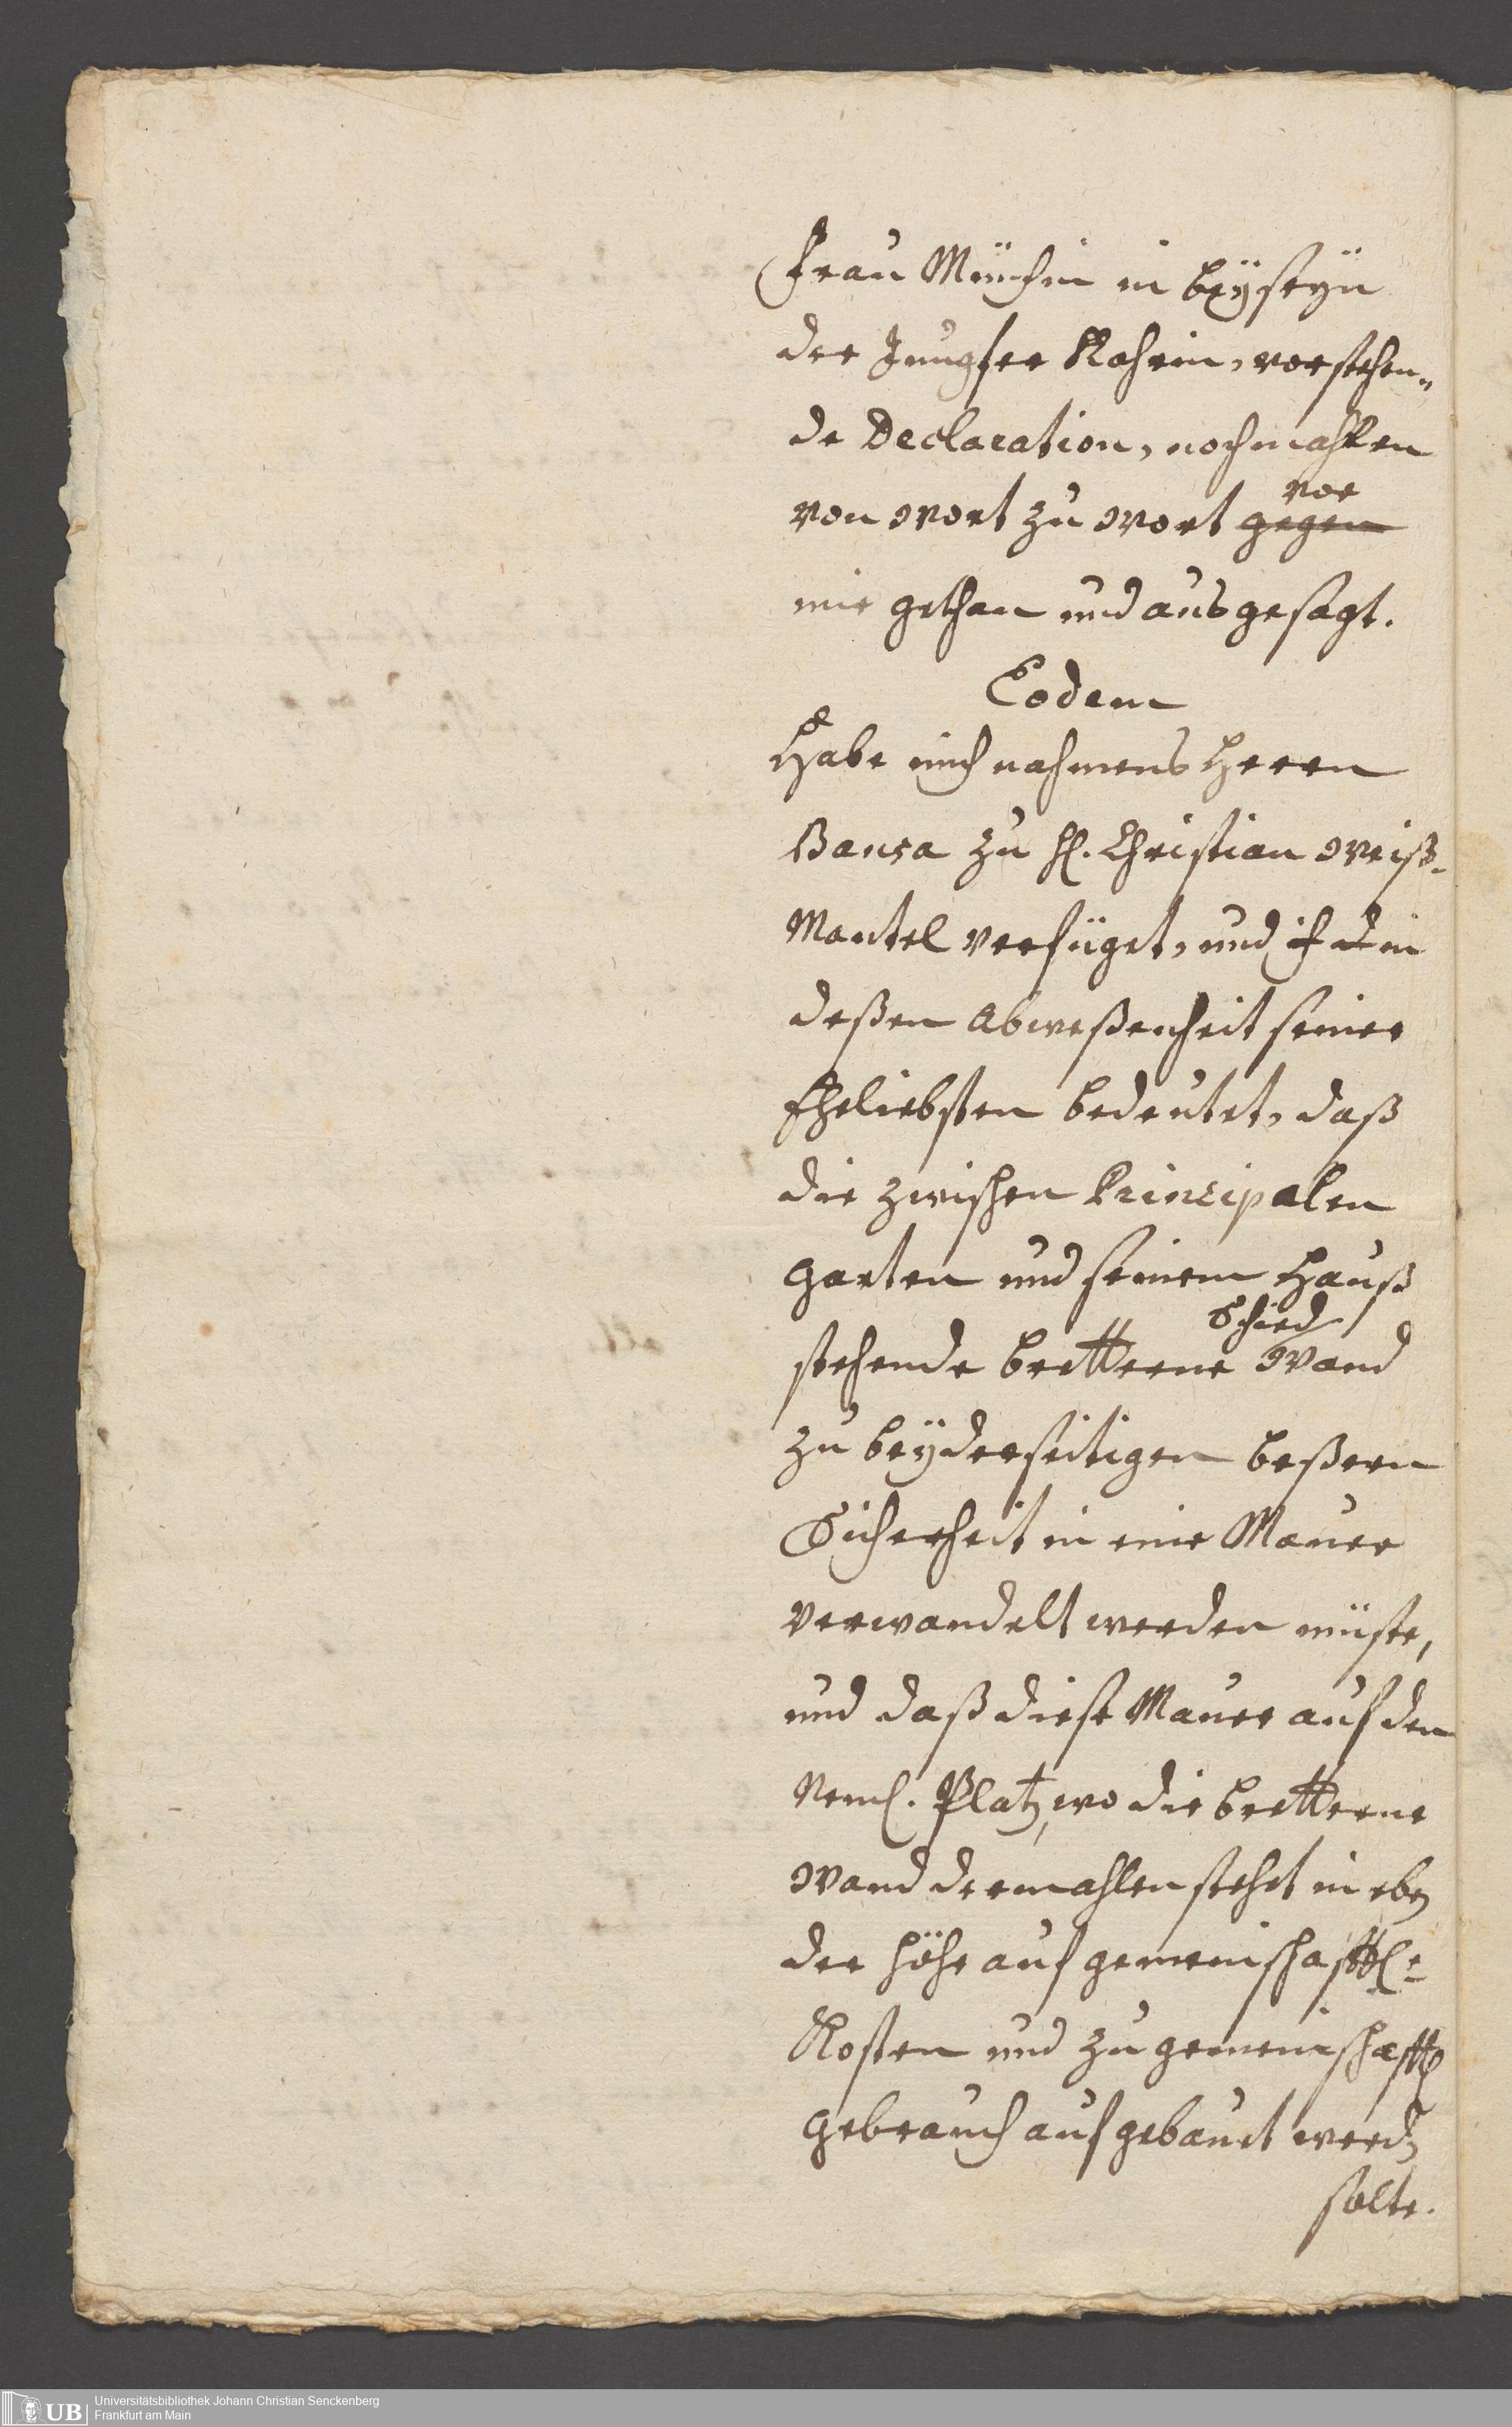 Frau Münchin in beÿseÿn
der Jungfer Kochin, vorstehen„
de Declaration, nochmahlen
von wort zu wort gegen vor
mir gethan und ausgesagt.
Eodem
Habe mich nahmens Herrn
Bansa zu H. Christian Weiß-
Mantel verfüget, und in
deßen Abweßenheit seiner
Eheliebsten bedeutet, daß
die zwischen Principalen
garten und seinem Hauß
stehende bretterne Schied
Wand
zu beÿderseitigen beßern
Sicherheit in eine Mauer
verwandelt werden müste,
und daß diese Mauer auf den
Neml. Platz, wo die bretterne
Wand dermahlen stehet in eben
der höhe auf gemeinschafftl.
Kosten und zu gemeinschafftl
gebrauch aufgebauet werden
solte.
UB
Universitätsbibliothek Johann Christian Senckenberg
Frankfurt am Main